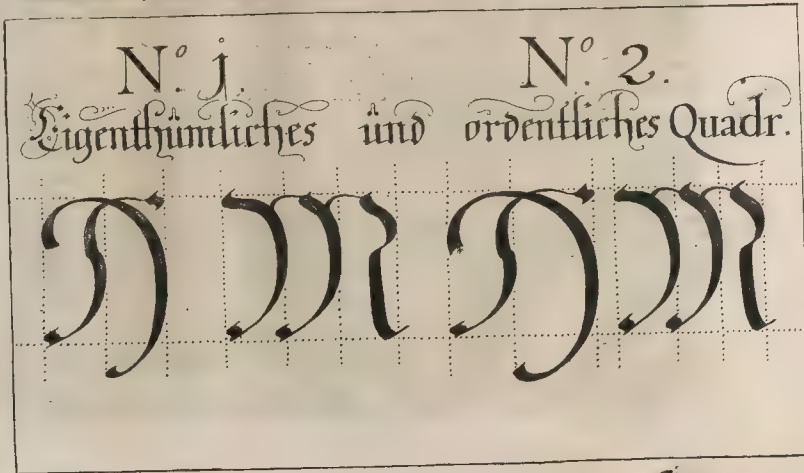 N.º j. N.º 2.
Eigenthümliches ünd ordentliches Quadr.
H M H M